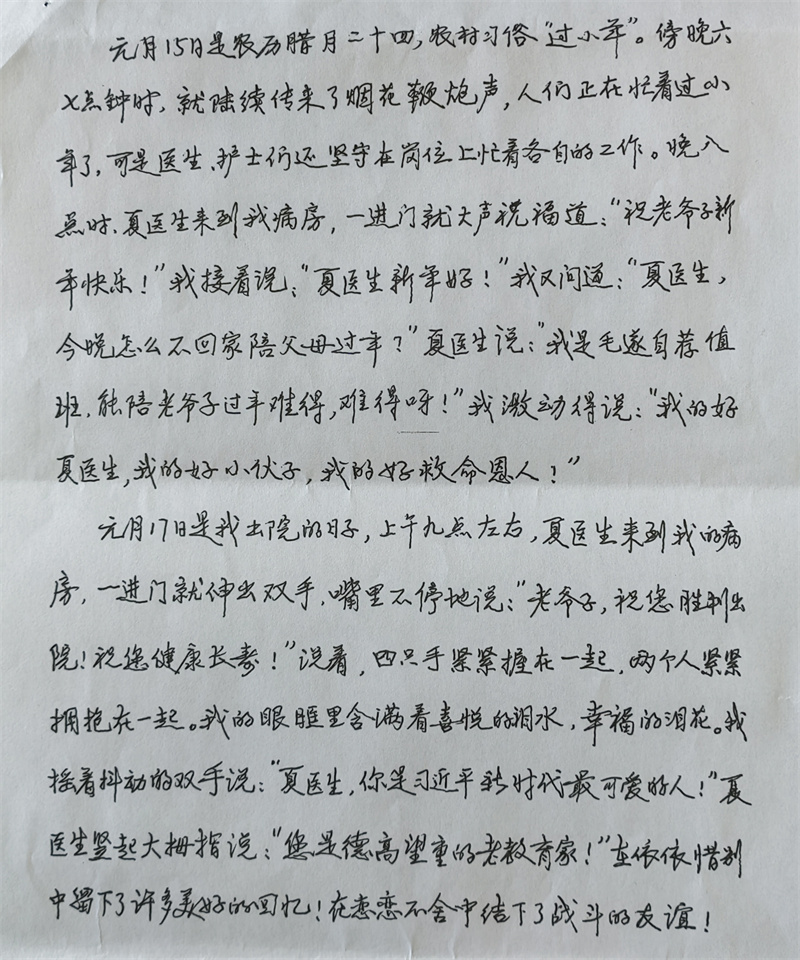 元月15日是农历腊月二十四,农村习俗“过小年”。傍晚六
七点钟时,就陆续传来了烟花鞭炮声,人们正在忙着过小
年了,可是医生、护士们还坚守在岗位上忙着各自的工作。晚八
点时,夏医生来到我病房,一进门就大声祝福道:“祝老爷子新
年快乐!”我接着说:“夏医生新年好!”我又问道:“夏医生,
今晚怎么不回家陪父母过年?”夏医生说:“我是毛遂自荐值
班,能陪老爷子过年难得,难得呀!”我激动得说:“我的好
夏医生,我的好小伙子,我的好救命恩人!”
元月17日是我出院的日子,上午九点左右,夏医生来到我的病
房,一进门就伸出双手,嘴里不停地说:“老爷子,祝您胜利出
院!祝您健康长寿!”说着,四只手紧紧握在一起,两个人紧紧
拥抱在一起。我的眼眶里含满着喜悦的泪水,幸福的泪花。我
摇着抖动的双手说:“夏医生,你是习近平新时代最可爱的人!”夏
医生竖起大拇指说:“您是德高望重的老教育家!”在依依惜别
中留下了许多美好的回忆!在恋恋不舍中结下了战斗的友谊!